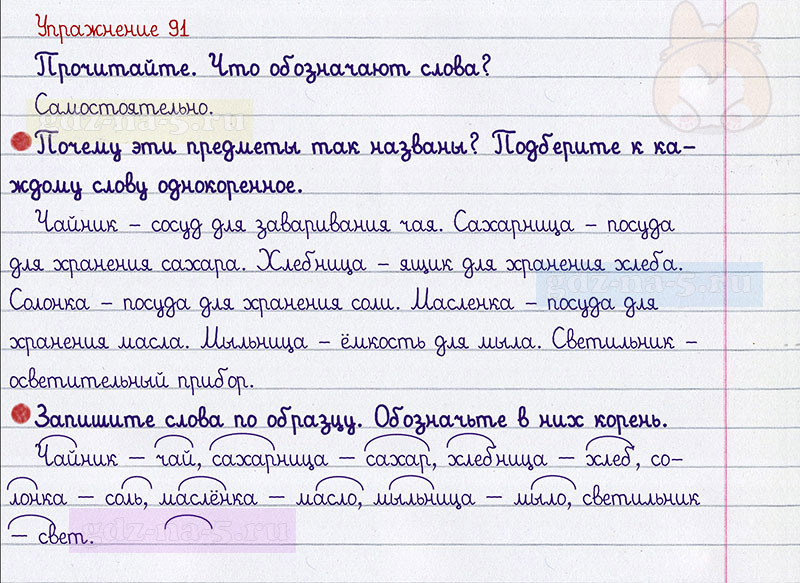 Упражнение 91
Прочитайте. Что обозначают слова?
Самостоятельно.
gdz-na-5.ru
Почему эти предметы так названы? Подберите к ка-
ждому слову однокоренное.
Чайник – сосуд для заваривания чая. Сахарница – посуда
для хранения сахара. Хлебница – ящик для хранения хлеба.
gdz-na-5.ru
Солонка – посуда для хранения соли. Масленка – посуда для
хранения масла. Мыльница – ёмкость для мыла. Светильник –
осветительный прибор.
Запишите слова по образцу. Обозначьте в них корень.
Чайник – чай, сахарница – сахар, хлебница – хлеб, со-
лонка – соль, маслёнка – масло, мыльница – мыло, светильник
– свет.
gdz-na-5.ru